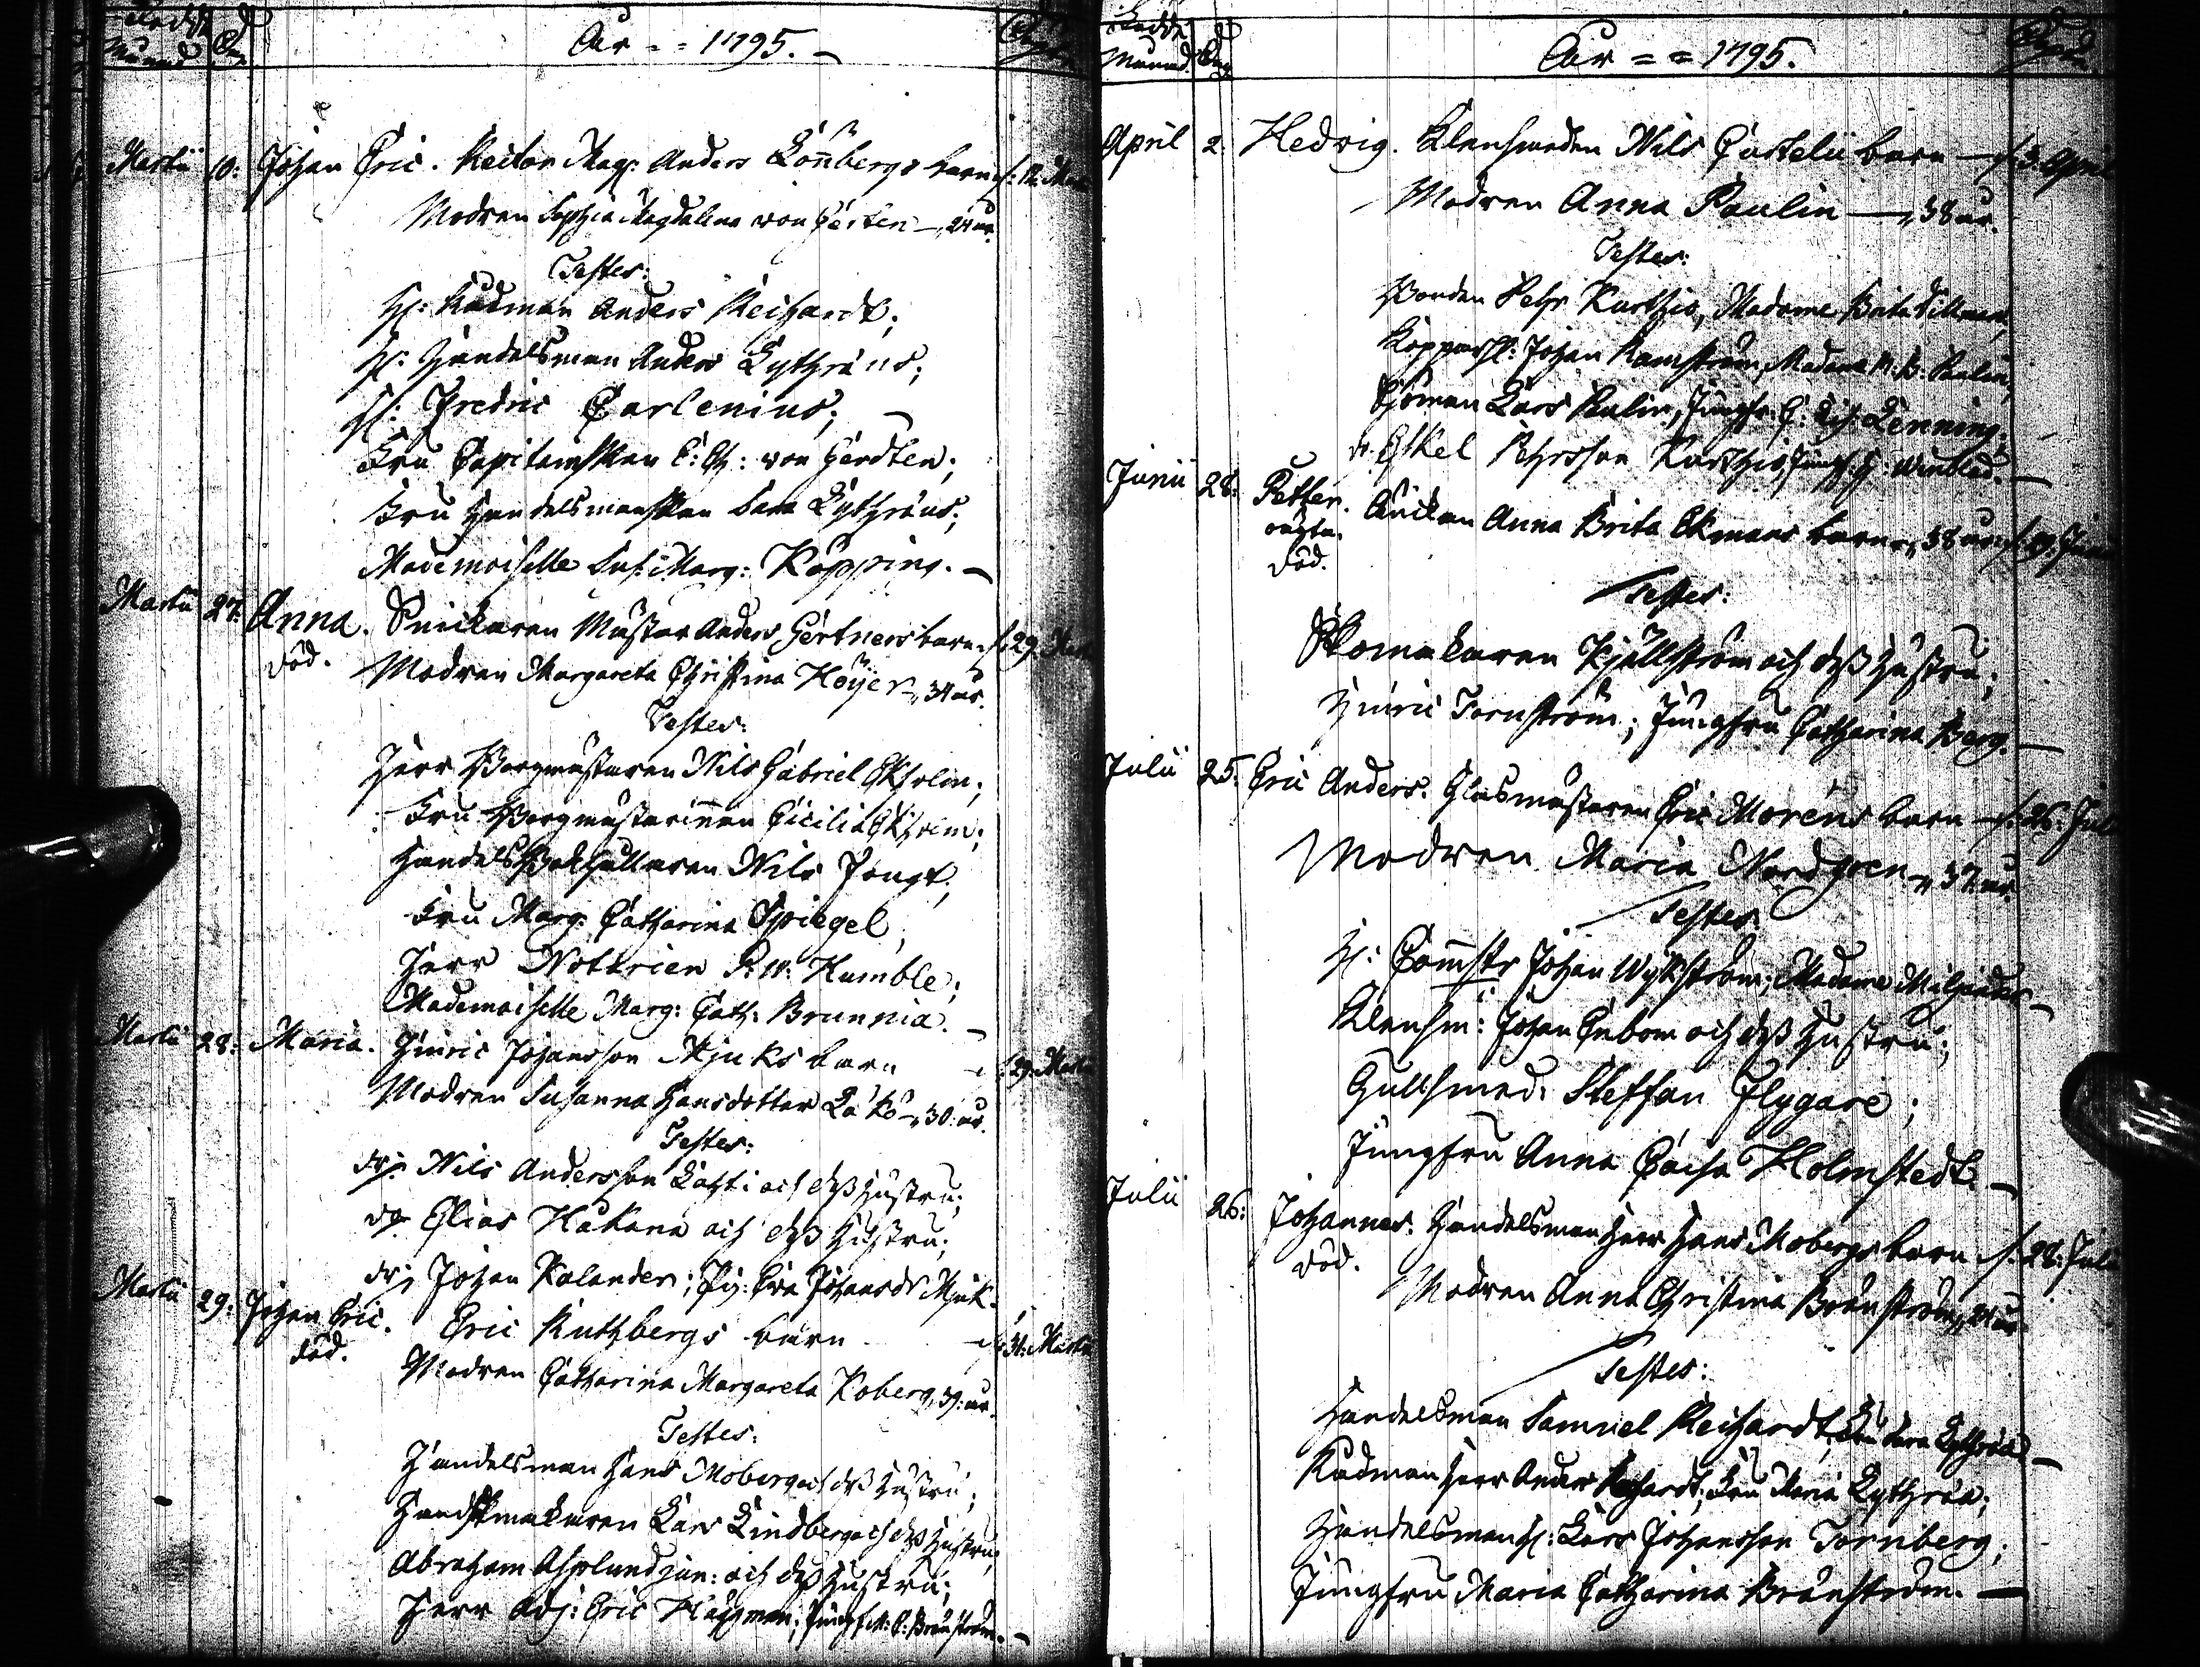 Månad Dag
Åhr = = 1795.
Martii 10: Johan Eric. Rector Mag: Anders Lönnbergs barn f: 12 Mar
Modren Sophia Magdalena von Gerten — 24 år.
Testes:
H: Rådman Anders Reichardt;
H: Handelsman Anders Lythræus;
H: Fredric Carlenius;
Fru Capitainskan C: Ch: von Gerdten;
Fru Handelsmanskan Sara Lythræus;
Mademoiselle Sus: Marg: Köpping.
Martii 27: Anna. Snickaren Mäster Anders Gertners barn f: 29. Mar
död. Modren Margareta Christina Höijer — 34 år.
Testes:
Herr Borgmästaren Nils Gabriel Ekholm;
Fru Borgmästarinnan Cicilia Ekholm;
Handels Bokhållaren Nils
Fru Marg: Catharina Spiegel,
Herr Notarien P. W. Humble;
Mademoiselle Marg: Cath: Brunnia.
Martii 28: Maria. Hinric Johansson Mjuks barn f: 29. Martii
Modren Susanna Hansdotter — 30. år.
Testes:
Nils Andersson Lahti och dess hustru;
Elias Hakana och dess hustru;
Johan Kalander; Pig: Eva Johansdr Mjuk.
Martii 29: Johan Eric. Eric Ruthbergs barn f: 31. Martii
död. Modren Catharina Margareta Koberg, 39: år.
Testes:
Handelsman Hans Moberg och dess hustru;
Handskmakaren Lars Lindberg och dess hustru,
Abraham Asplund jun: och dess hustru;
Herr Adj: Eric Häggman; Jungf: M: C: Brånström.
Månad Dag
Åhr = = 1795.
April 2: Hedvig. Klensmeden Nils Castelii barn — f. 3. April
Modren Anna Paulin — 38 år.
Testes:
Bonden Pehr Kurthio, Madame Brita
Kopparsl: Johan Ramström, Madame M: B: Paulin,
Sjöman Lars Paulin, Jungfr: C: Lis: Lenning;
Eskel Pehrsson Kurthio, Jungf: H: Winblad.
Junii 28: Petter. Änckan Anna Brita Ekmans barn — 38 år. f. 29. Junii
oägta.
död.
Testes:
Skomakaren Kjällström och dess hustru;
Hinric Tornström; Jungfru Catharina Berg.
Julii 25: Eric Anders. Glasmästaren Eric Moréns barn — f: 26: Juli
Modren Maria Nordgren — 37 år.
Testes:
H: Johan Wykström; Madame
Klensm: Johan Enbom och dess hustru;
Gullsmed: Steffan Flygare;
Jungfru Anna Caisa Holmstedt.
Julii 26: Johannes. Handelsman Herr Hans Mobergs barn f. 28: Juli
död. Modren Anna Christina Brånström
Testes:
Handelsman Samuel Reichardt, Fru Sara Lythræa
Rådman Herr Anders Reichardt; Fru Maria Lythræa;
Handelsman H: Lars Johansson Tornberg;
Jungfru Maria Catharina Brånström.